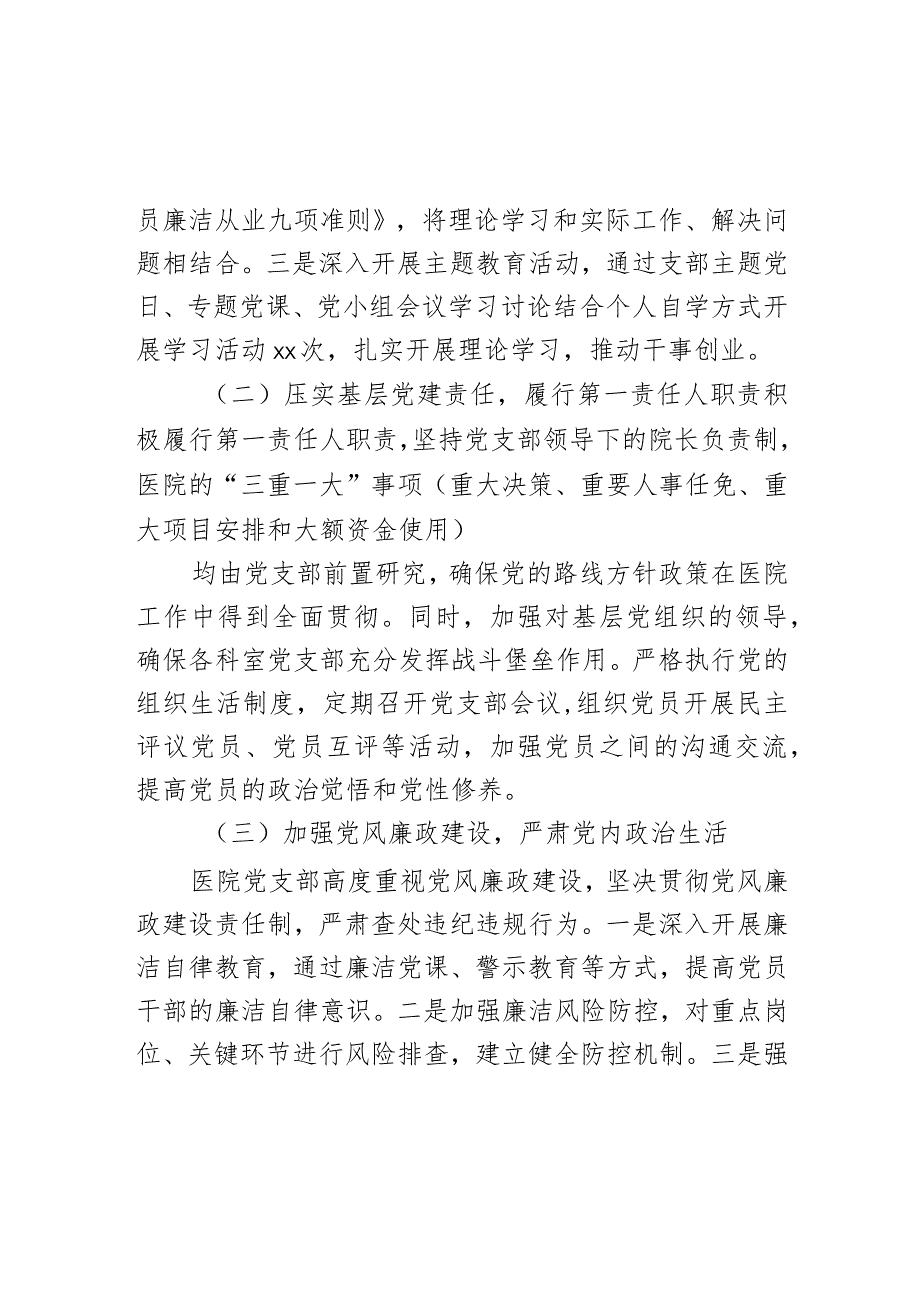 员廉洁从业九项准则》，将理论学习和实际工作、解决问
题相结合。三是深入开展主题教育活动，通过支部主题党
日、专题党课、党小组会议学习讨论结合个人自学方式开
展学习活动 xx 次，扎实开展理论学习，推动干事创业。
（二）压实基层党建责任，履行第一责任人职责积
极履行第一责任人职责，坚持党支部领导下的院长负责制，
医院的“三重一大”事项（重大决策、重要人事任免、重
大项目安排和大额资金使用）
均由党支部前置研究，确保党的路线方针政策在医院
工作中得到全面贯彻。同时，加强对基层党组织的领导，
确保各科室党支部充分发挥战斗堡垒作用。严格执行党的
组织生活制度，定期召开党支部会议,组织党员开展民主
评议党员、党员互评等活动，加强党员之间的沟通交流，
提高党员的政治觉悟和党性修养。
（三）加强党风廉政建设，严肃党内政治生活
医院党支部高度重视党风廉政建设，坚决贯彻党风廉
政建设责任制，严肃查处违纪违规行为。一是深入开展廉
洁自律教育，通过廉洁党课、警示教育等方式，提高党员
干部的廉洁自律意识。二是加强廉洁风险防控，对重点岗
位、关键环节进行风险排查，建立健全防控机制。三是强